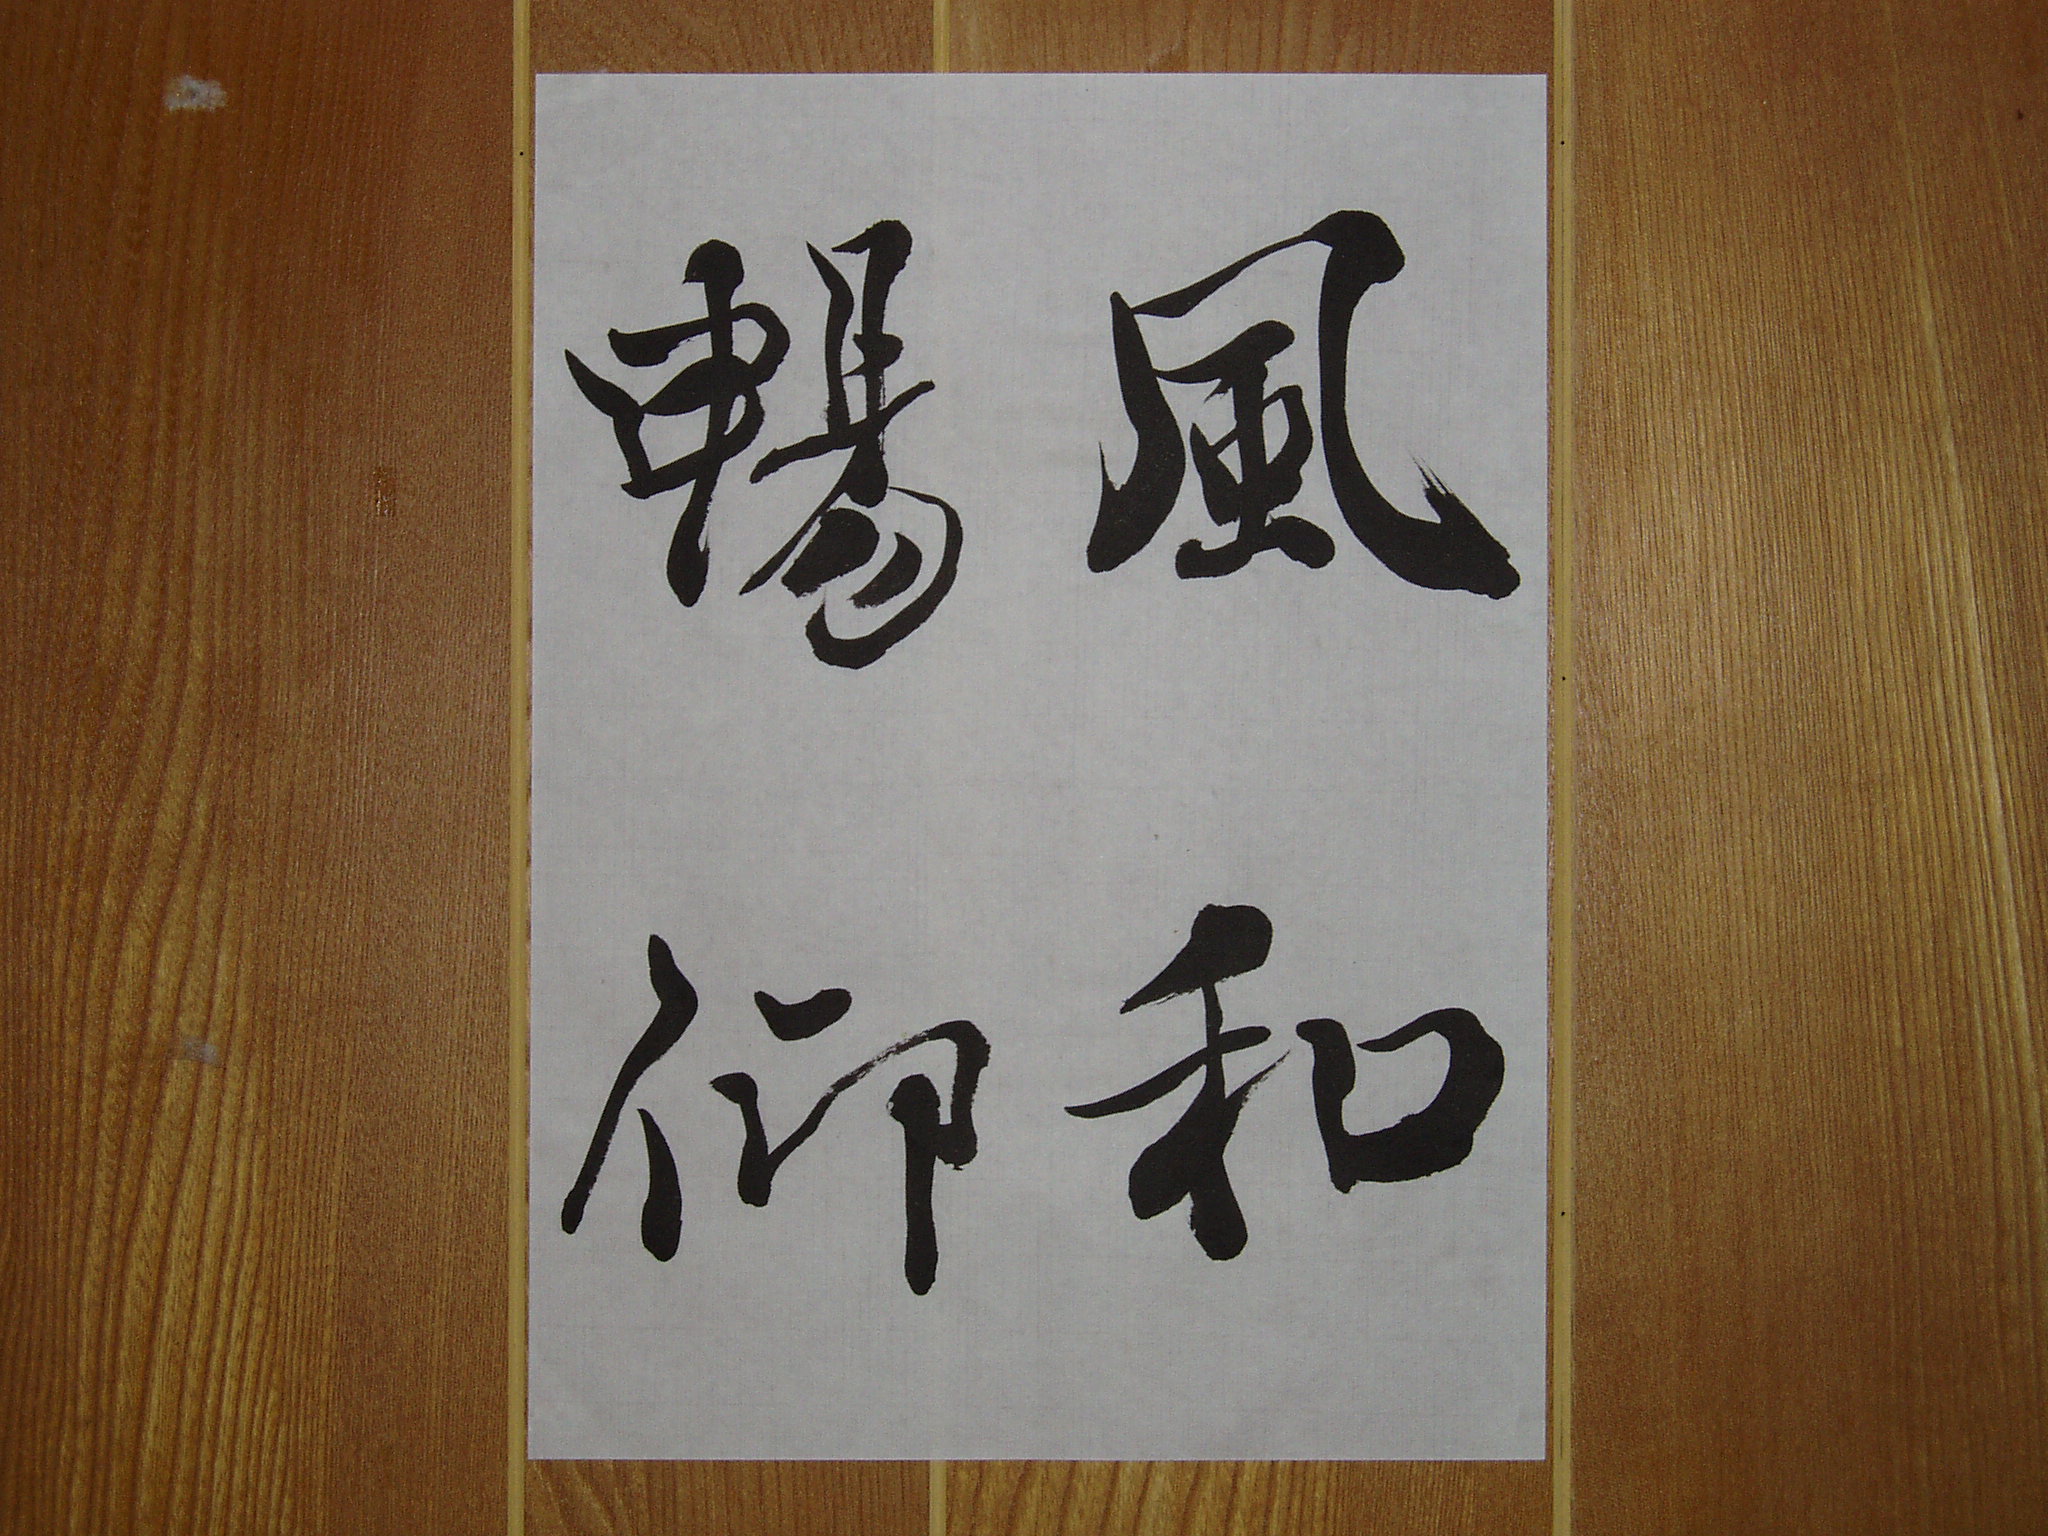 風和
暢仰